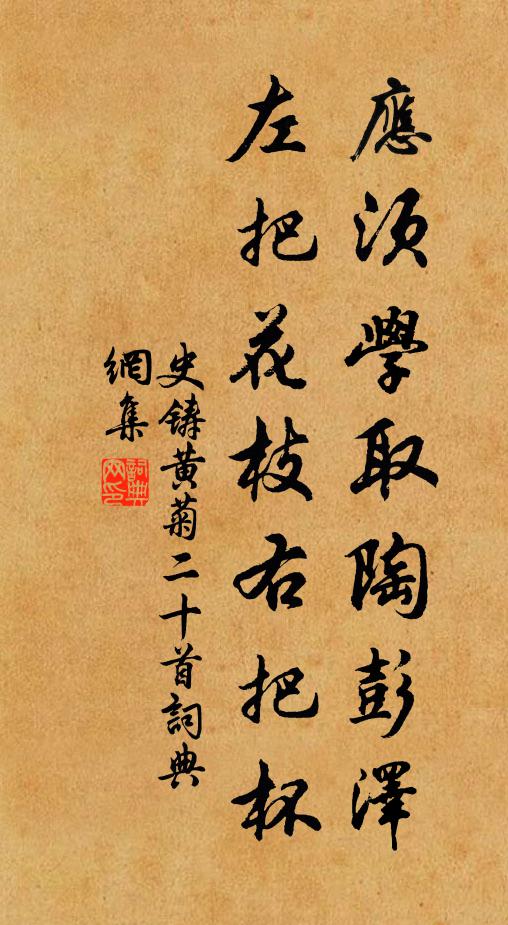 應須學取陶彭澤
左把花枝右把杯
史鑄黃菊二十首詞典
網集
詞典
网印